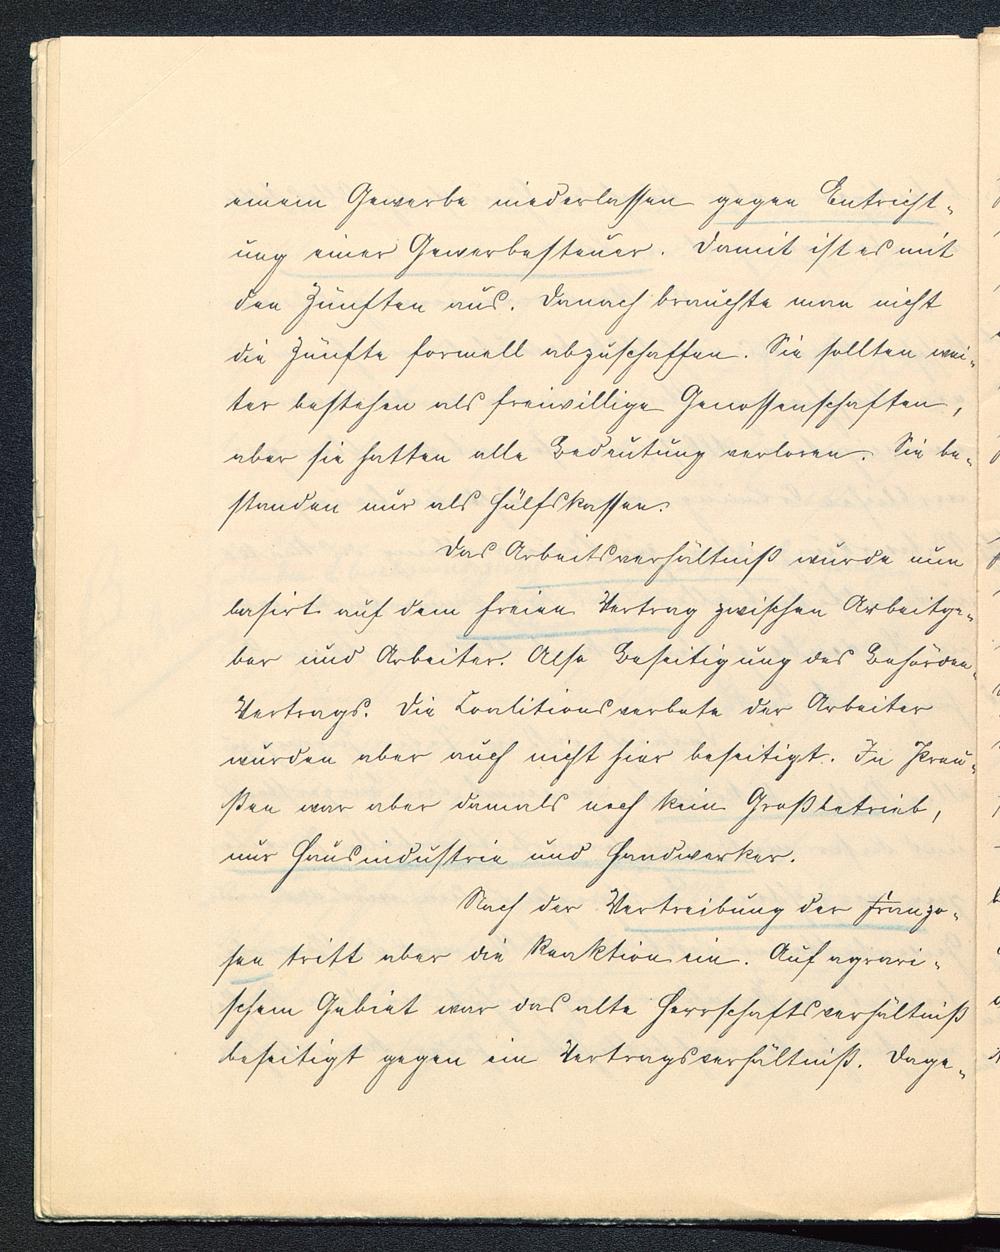 einem Gewerbe niederlassen gegen Entricht-
ung einer Gewerbesteuer. Damit ist es mit
den Zünften aus. Danach brauchte man nicht
die Zünfte formell abzuschaffen. Sie sollten wei-
ter bestehen als freiwillige Genossenschaften,
aber sie hatten alle Bedeutung verloren. Sie be-
standen nur als Hülfskassen.
Das Arbeitsverhältniß wurde nun
basirt auf dem freien Vertrag zwischen Arbeitge-
ber und Arbeiter. Also Beseitigung des Behörden-
Vertrags. Die Coalitionsverbote der Arbeiter
wurden aber auch nicht hier beseitigt. In Preu-
ßen war aber damals noch kein Großbetrieb,
nur Hausindustrie und Handwerker.
Nach der Vertreibung der Franzo-
sen tritt aber die Reaktion ein. Auf agrari-
schem Gebiet war das alte Herrschaftsverhältniß
beseitigt gegen ein Vertragsverhältniß. Dage-